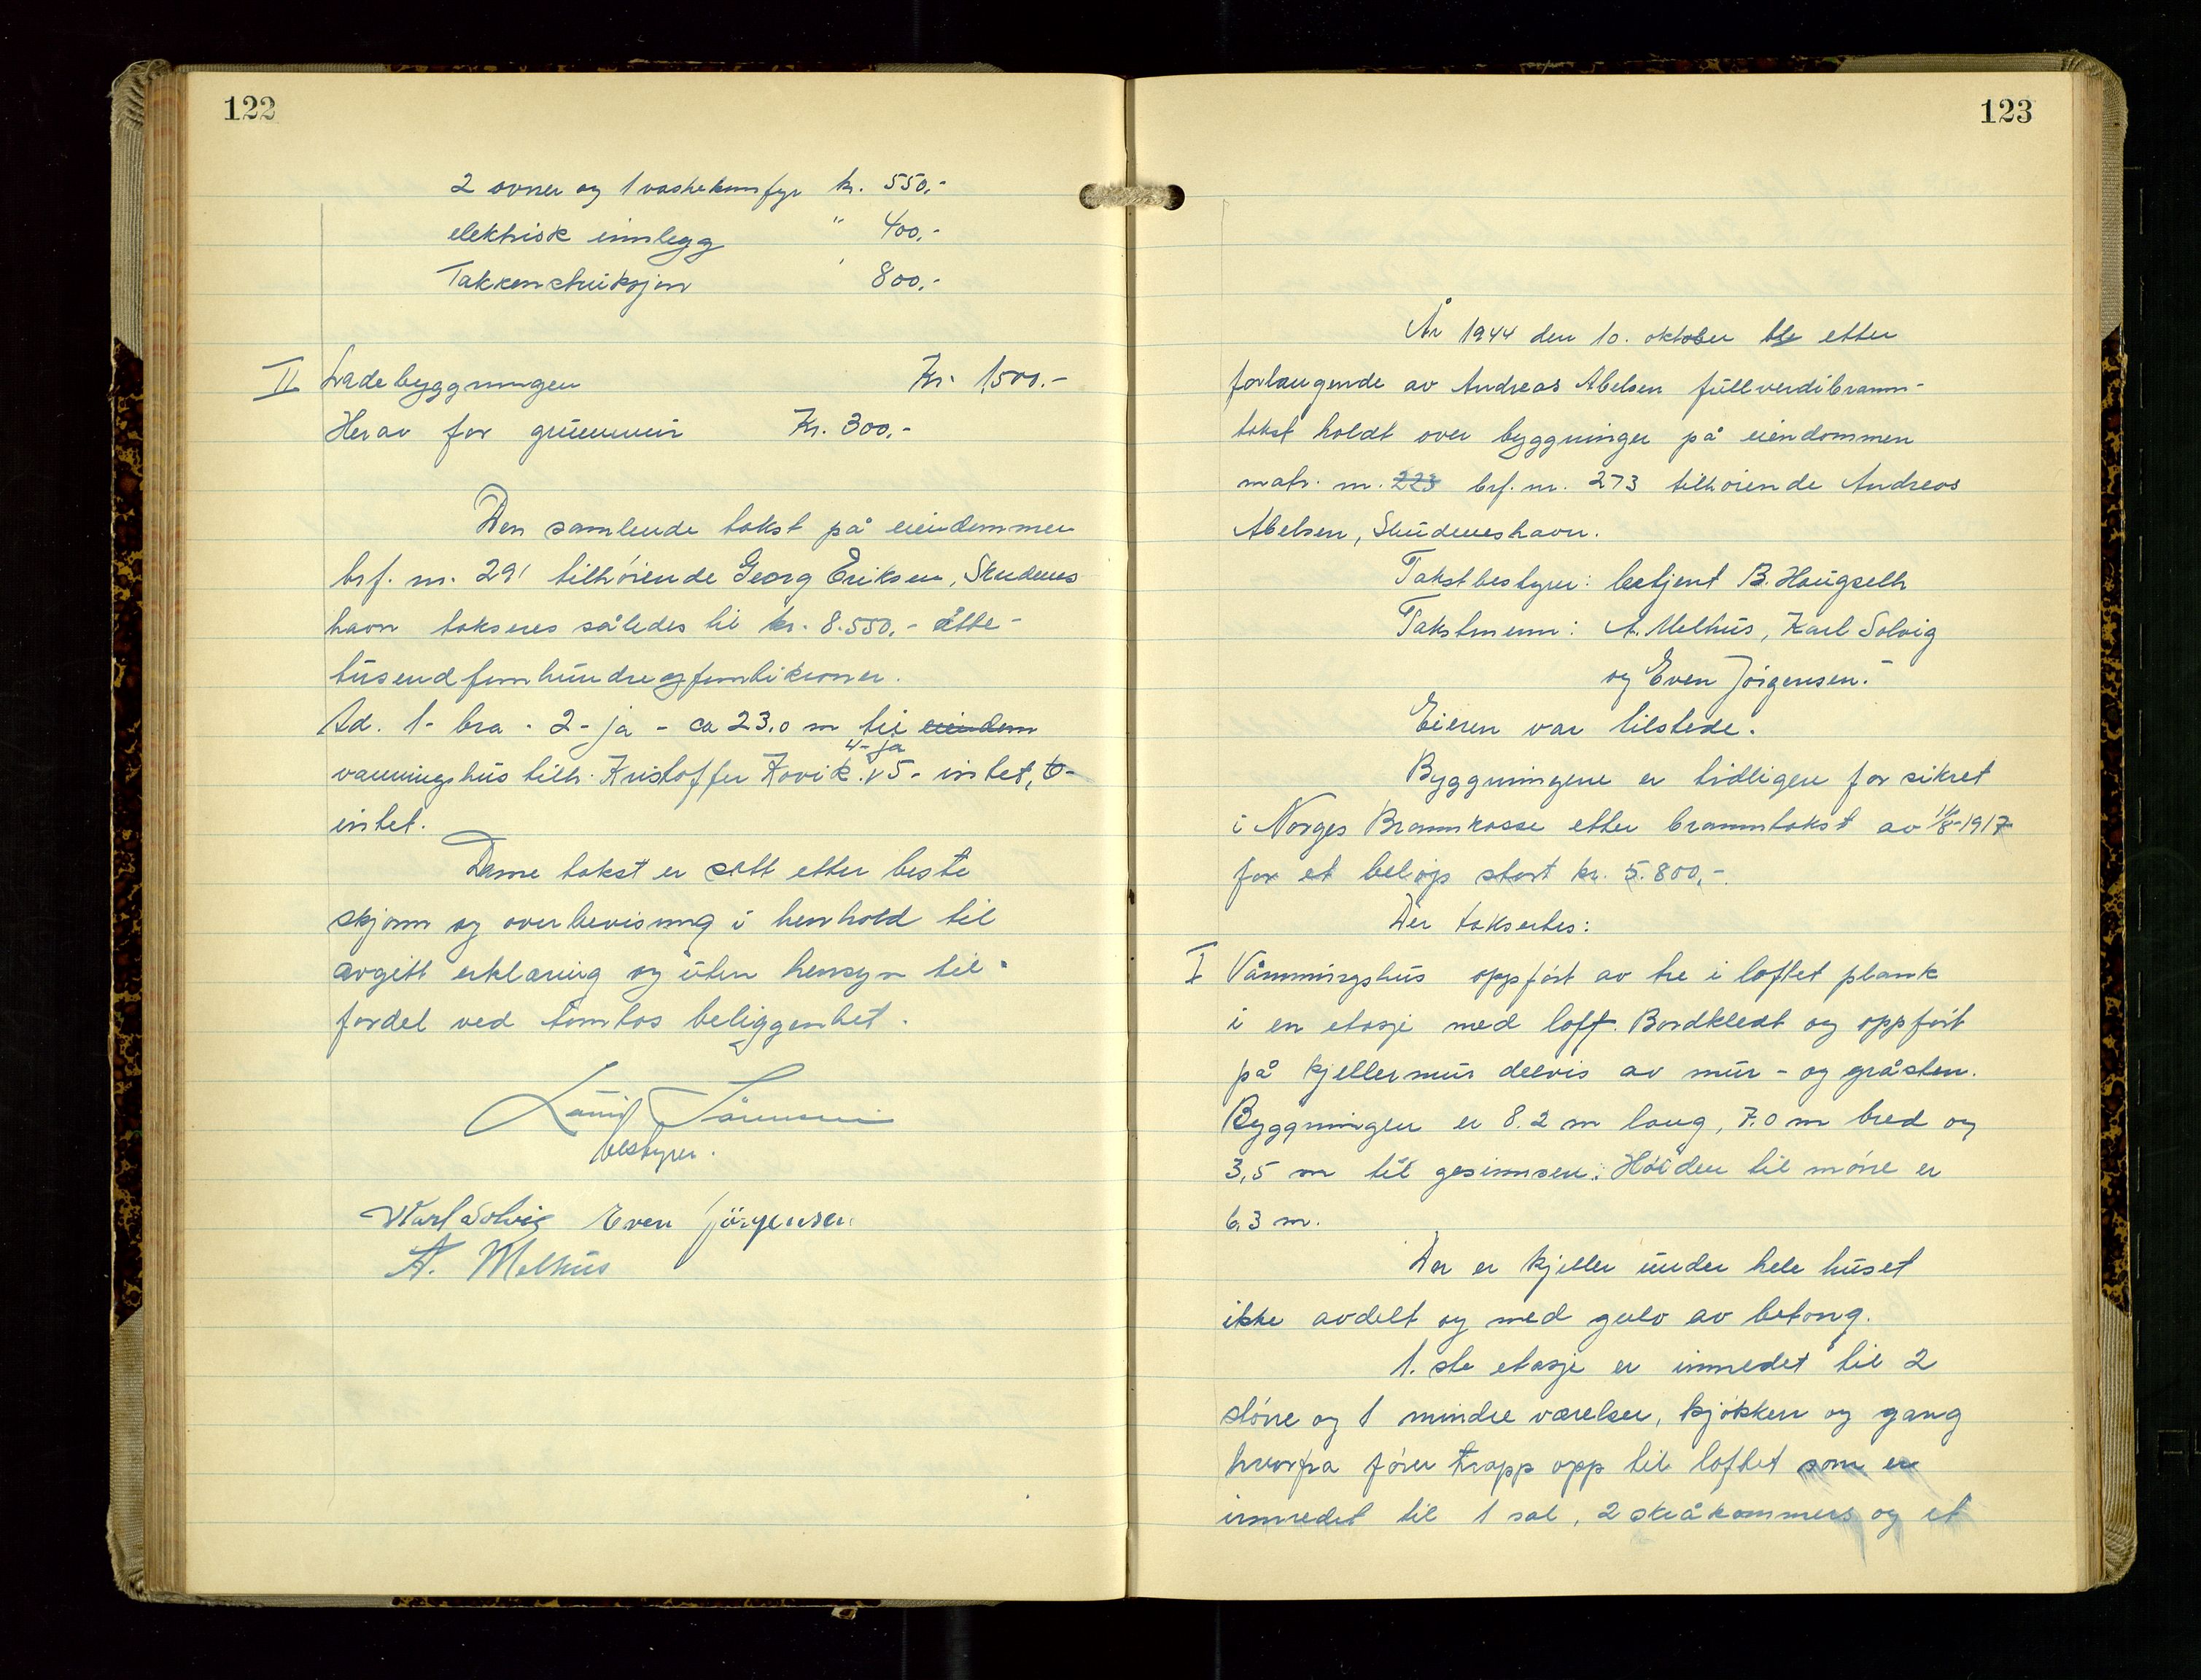 122
2 ovner og 1 vaskekomfyr kr. 550,-
elektrisk innlegg " 400,-
Takkonstruksjon ' 800,-
II Ladebyggningen Kr. 1,500.-
Herav for grunnmur Kr. 300,-
Den samlende takst på eiendommen
brf. nr. 291 tilhörende Georg Eriksen, Skudenes
havn takseres således til kr. 8.550,- åtte-
tusend femhundreogfemtikroner.
Ad. 1- bra - 2- ja - ca 23.0 m til eiendom
4- ja
vanningshus tilh. Kristoffer Kovik. v 5- intet, 6-
intet.
Denne takst er satt etter beste
skjønn og overbevisning i henhold til
avgitt erklæring og uten hensyn til
fordel ved tomtas beliggenhet.
bestyrer.
Karl Solvig Even Jörgensen
A. Melhus
123
År 1944 den 10. oktober ble etter
forlangende av Andreas Abelsen fullverdibrann-
takst holdt over byggninger på eiendommen
matr. nr. 223 brf. nr. 273 tilhörende Andreas
Abelsen, Skudeneshavn.
Takstbestyrer: betjent B. Haugseth
Takstmenn: A. Melhus, Karl Solvig
og Even Jörgensen.-
Eieren var tilstede.
Byggningene er tidligere forsikret
i Norges Brannkasse etter branntakst av 11/8-1917
for et beløp stort kr. 5.800,-.
Der taksertes:
I Våningshus oppført av tre i laftet plank
i en etasje med loft. Bordkledt og oppført
på kjellermur delvis av mur- og gråsten.
Byggningen er 8.2 m lang, 7.0 m bred og
3,5 m til gesimsen. Höiden til möne er
6,3 m.
Der er kjeller under hele huset
ikke avdelt og med gulv av betong.
1. ste etasje er innredet til 2
störe og 1 mindre værelser, kjökken og gang
hvorfra förer trapp opp til loftet som er
innredet til 1 sal, 2 skråkammers og et